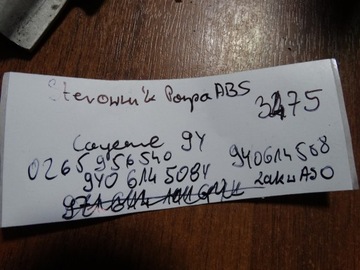 Sterownik Pompa ABS
3475
Cayenne 9Y
0265956540
9Y0614508Y 9Y0614508
zakup ASO